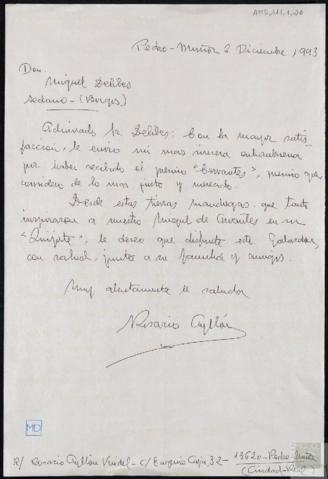 AMD,111,1,20
Pedro-Muñoz 2 Diciembre 1993
Don
Miguel Delibes
Sedano - (Burgos)
Admirado Sr. Delibes: Con la mayor satis-
facción, le envio mi mas sincera enhorabuena
por haber recibido el premio "Cervantes", premio que
considero de lo mas justo y merecido.
Desde estas tierras manchegas, que tanto
inspiraron a nuestro Miguel de Cervantes en su
"Quijote", le deseo que disfrute este Galardon,
con salud, junto a su familia y amigos.
Muy atentamente le saluda
Rosario Ayllón
MD
R/ Rosario Ayllón Verdel - C/ Eugenio 32 - 13620 - Pedro-Muñoz
(Ciudad-Real)